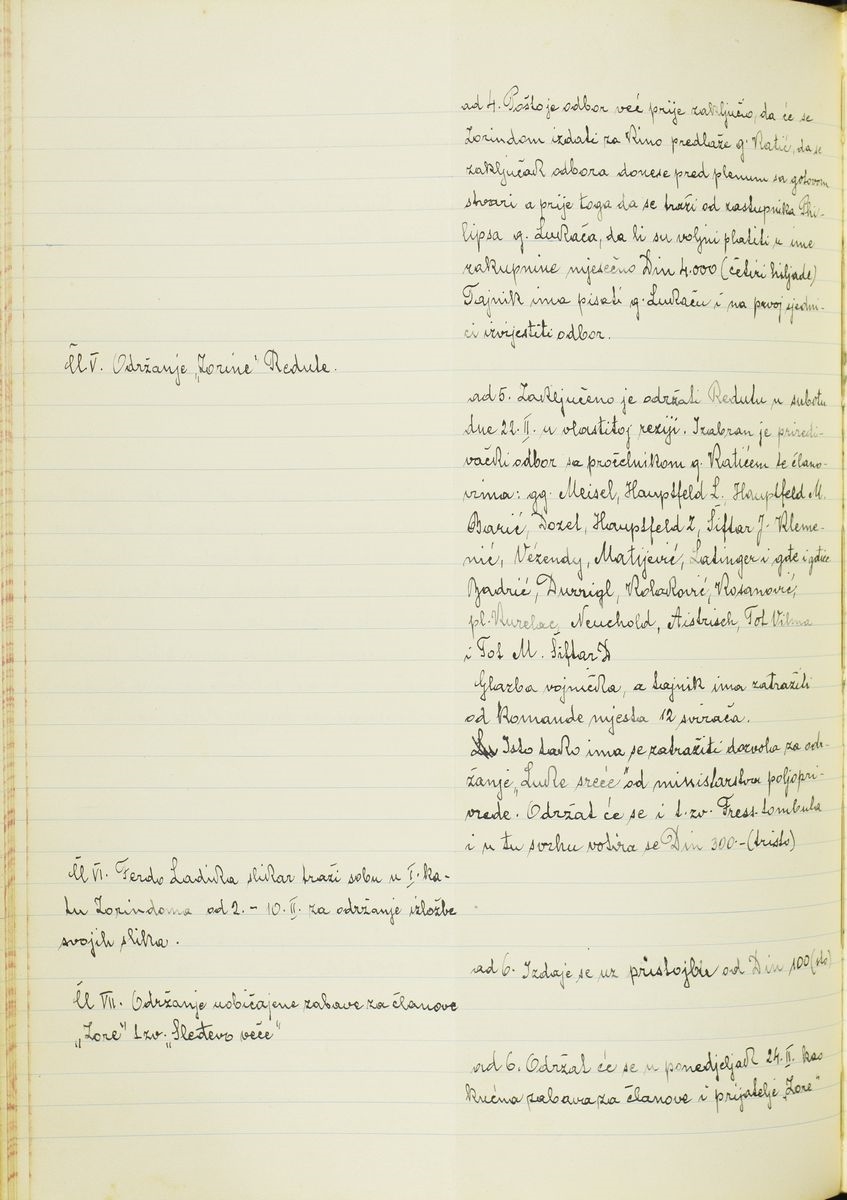 ad 4. Pošto je odbor već prije zaključio, da će se
Zorindom izdati za Kino predlaže g. Ratić, da se
zaključak odbora donese pred plenum sa gotovom
stvari a prije toga da se traži od zastupnika Phi-
lipsa g. Lukača, da li su voljni platiti u ime
zakupnine mjesečno Din 4.000 (četiri hiljade)
Tajnik ima pisati g. Lukaču i na prvoj sjedni-
ci izvjestiti odbor.
Čl V. Održanje „Zorine" Redute.
ad 5. Zaključeno je održati Redutu u subotu
dne 22. II. u vlastitoj reziji. Izabran je priredi-
vački odbor sa pročelnikom g. Ratićem te člano-
vima: gg. Meisel, Hauptfeld L., Hauptfeld M.
Barić, Dozet, Hauptfeld Z, Šiftar J. Kleme-
nić, Vézendy, Matijević, Latinger i gđe i gđice
Badrić, Durrigl, Kolaković, Kosanović,
pl. Kurelac, Neuchold, Aistrisch, Tot Vilma
i Tot M. Šiftar D
Glazba vojnička, a tajnik ima zatražiti
od komande mjesta 12 svirača.
Isto tako ima se zatražiti dozvola za odr-
žanje „Luke sreće" od ministarstva poljopri-
vrede. Održat će se i t.zv. Fress-tombula
i u tu svrhu votira se Din 300.- (tristo)
Čl VI. Ferdo Ladika slikar traži sobu u I. ka-
tu Zorindoma od 2. - 10. II. za održanje izložbe
svojih slika.
ad 6. Izdaje se uz pristojbu od Din 100 (sto)
Čl VII. Održanje uobičajene zabave za članove
„Zore" t.zv. „Sleđevo veče"
ad 6. Održat će se u ponedjeljak 24. II. kao
kućna zabava za članove i prijatelje „Zore"